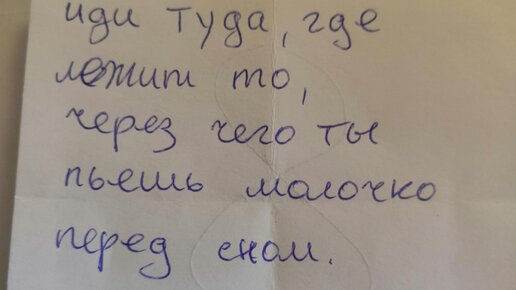 иди туда, где
лежит то,
через чего ты
пьешь молочко
перед сном.